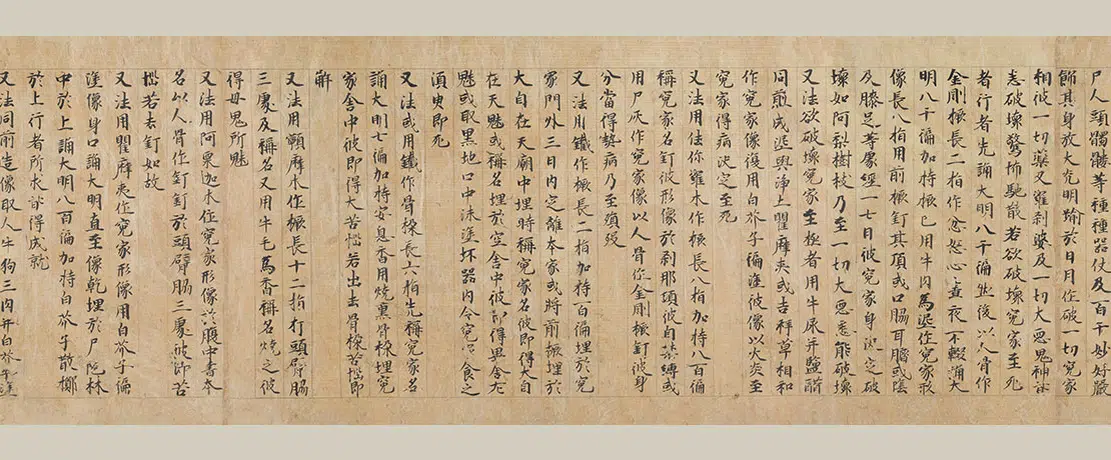 尸人頭髑髏等種種器仗及百千妙好嚴
飾其身放大光明踰於日月作破一切冤家
相彼一切藥叉羅剎婆及一切大惡鬼神諸
志破壞驚怖馳散若欲破壞冤家至死
者行者先誦大明八千徧然後以人骨作
金剛橛長二指作忿怒心晝夜不輟誦大
明八千徧加持橛已用牛肉馬泥作冤家形
像長八指用前橛釘其項或口腸耳臍或陰
及膝足等處經一七日彼冤家身決定破
壞如阿梨樹枝乃至一切大惡悉能破壞
又法欲破壞冤家至極者用牛尿并鹽醋
同煎成泥與淨土瞿摩夷或吉祥草相和
作冤家像復用白芥子徧塗彼像以火炙至
冤家得病決定至死
又法用佉你囉木作橛長八指加持八百徧
稱冤家名釘彼形像於剎那頃彼自禁縛或
用尸灰作冤家像以人骨作金剛橛釘彼身
分當得勢病乃至殞歿
又法用鐵作橛長二指加持一百徧埋於冤
家門外三日內定離本家或將前橛埋於
大自在天廟中埋時稱冤家名彼即得大自
在天魅或稱名埋於空舍中彼即得畢舍左
魅或取黑地口中沫塗坏器內令冤家食之
須臾即死
又法或用鐵作骨橾長六指先稱冤家名
誦大明七徧加持安息香用燒裹骨橾埋冤
家舍中彼即得大苦惱若出去骨橾苦惱即
解
又法用輀摩木作橛長十二指打頭臂腸
三處及稱名又用牛毛馬香稱名燒之彼
得母鬼所魅
又法用阿栗迦木作冤家形像於腹中書本
名以人骨作釘釘於頭臂腸三處彼即苦
惱若去釘如故
又法用瞿摩夷作冤家形像用白芥子徧
塗像身口誦大明直至像乾埋於尸陀林
中於上誦大明八百徧加持白芥子散擲
於上行者所求皆得成就
又法同前造像取人牛狗三肉并白芥子塗